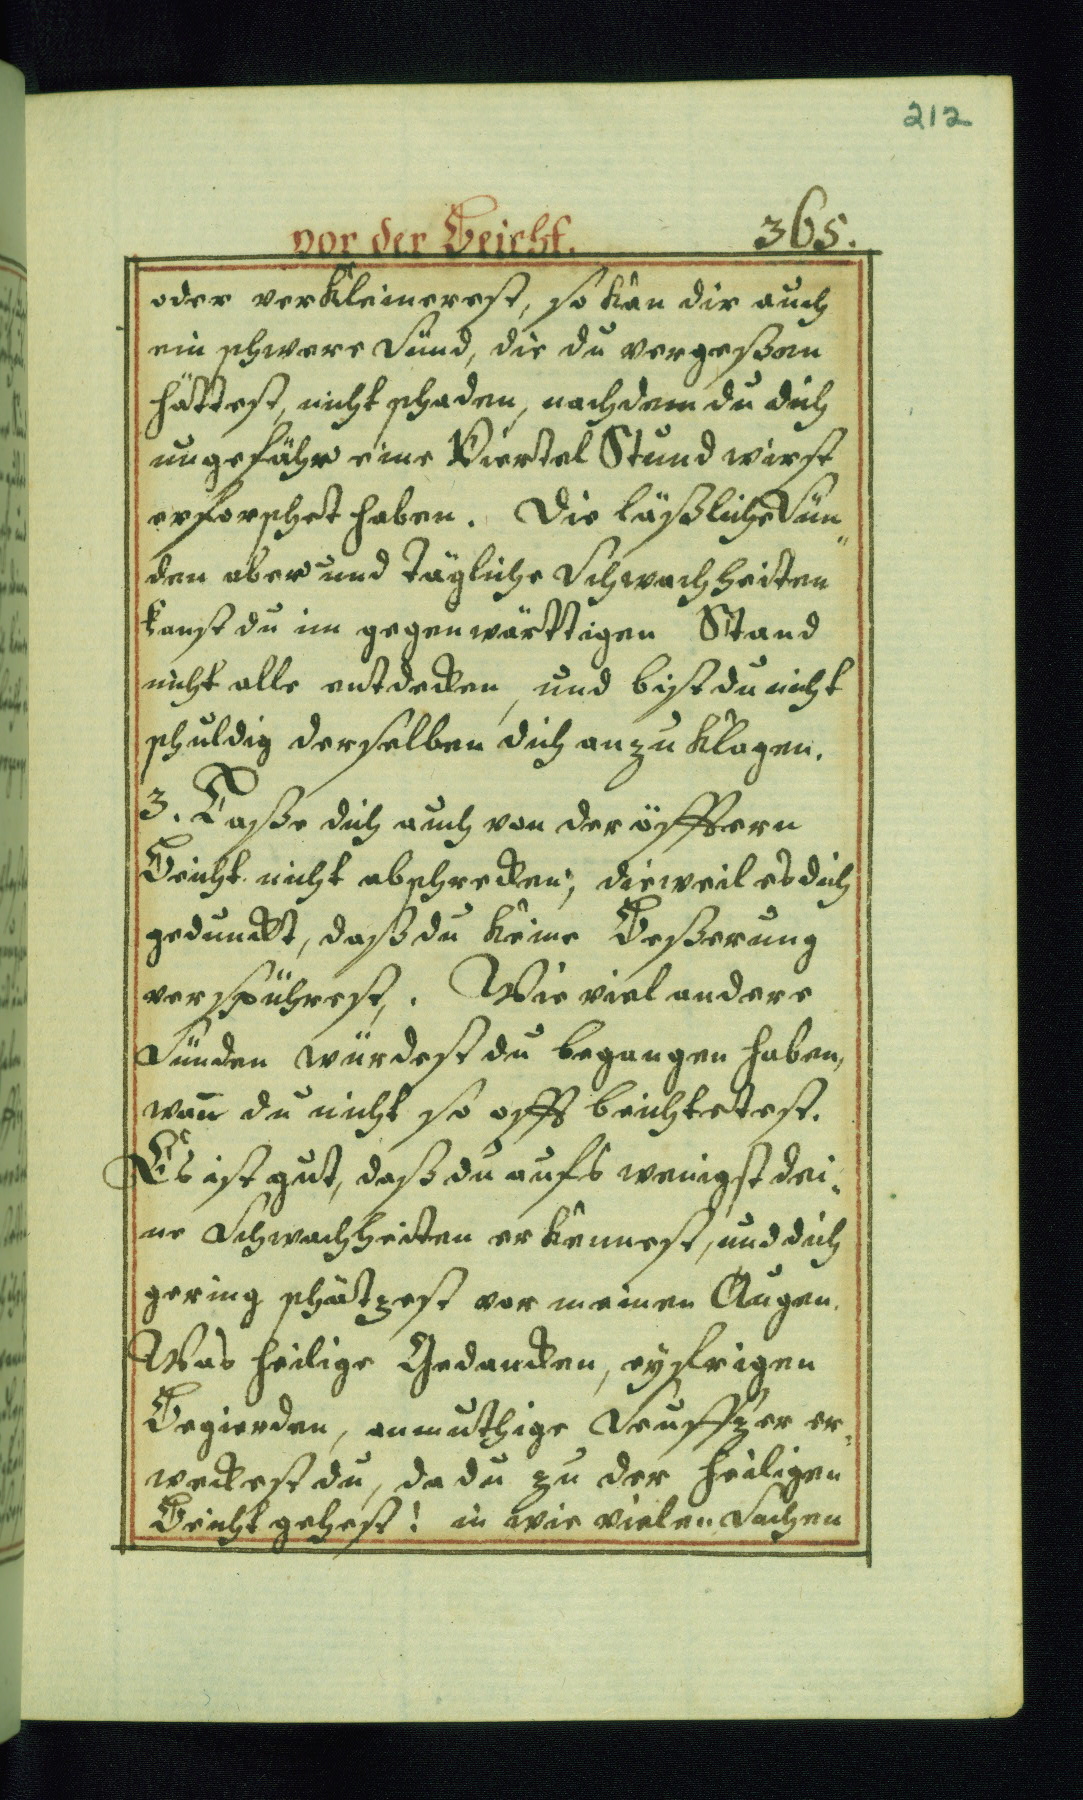 212
vor der Beicht. 365.
oder verkleinerest, so kan dir auch
ein schwere Sünd, die du vergeßen
hättest, nicht schaden, nachdem du dich
ungefähr eine Viertel Stund wirst
erforschet haben. Die läßliche Sün„
den aber und tägliche Schwachheiten
kanst du im gegenwärttigen Stand
nicht alle entdecken, und bist du nicht
schuldig derselben dich anzuklagen.
3. Laße dich auch von der öfftern
Beicht nicht abschrecken; dieweil es dich
gedunckt, daß du keine Beßerung
verspührest,. Wie viel andere
Sünden würdest du begangen haben,
wañ du nicht so offt beichtetest.
Es ist gut, daß du aufs wenigst dei„
ne Schwachheiten erkennest, und dich
gering schätzest vor meinen Augen.
Was heilige Gedancken, eyfrigen
Begierden, anmuthige Seuffzer er„
weckest du, da du zu der heiligen
Beicht gehest! in wie vielen Sachen